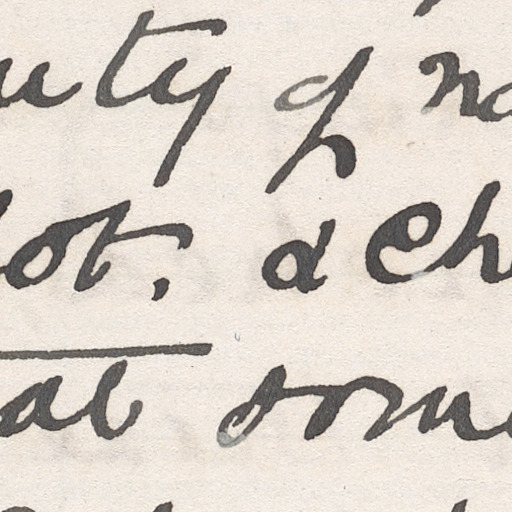 uty of na
lot. & Ch
at some